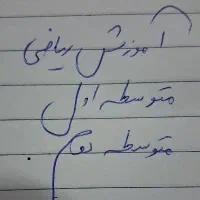 آموزش ریاضی
متوسطه اول
متوسطه دوم